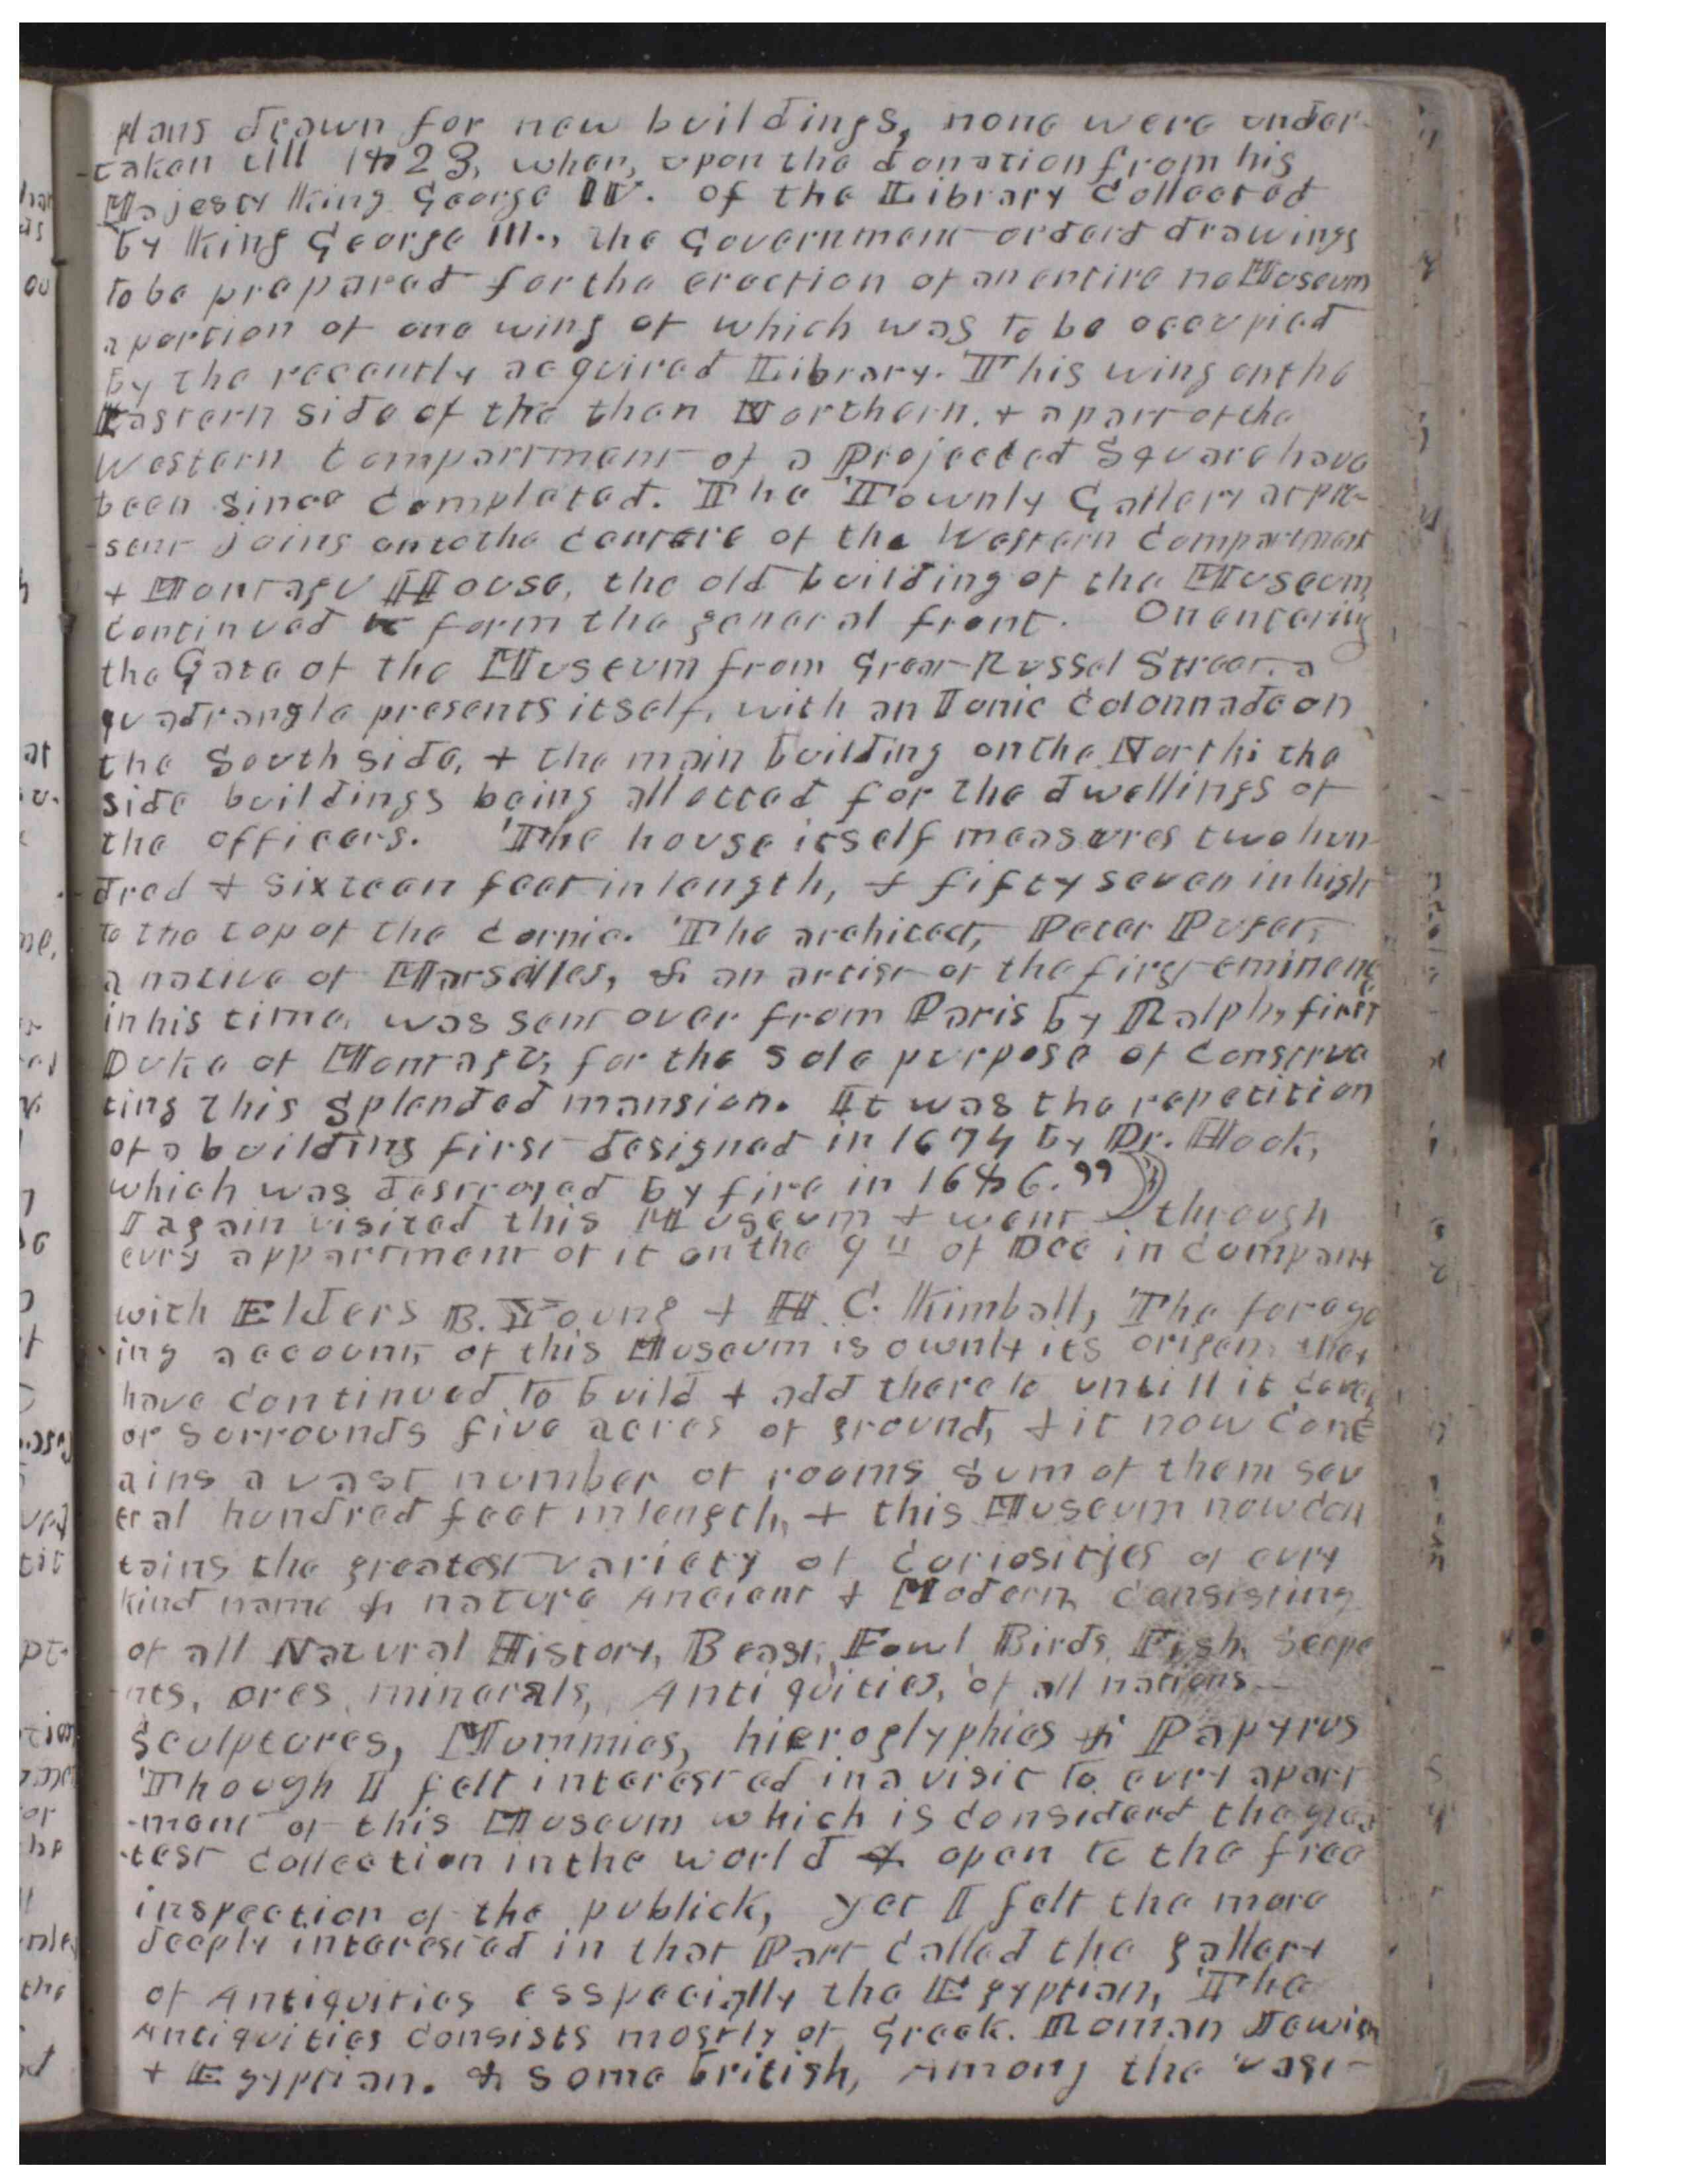 plans drawn for new buildings, none were under-
-taken till 1823, when, upon the donation from his
Majesty King George IV. of the Library Collected
by King George III., the Government orderd drawings
to be prepared for the erection of an entire ne Museum
a portion of one wing of which was to be occupied
by the recently acquired Library. This wing on the
Eastern side of the then Northern, & a part of the
Western Compartment of a Projected Square have
been since Completed. The Townly Gallery at pre-
-sent joins on to the Centere of the Western Compartment
& Montagu House, the old building of the Museum
Continued to form the general front. On entering
the Gate of the Museum from Great Russel Street, a
quadrangle presents itself, with an Ionic Colonnade on
the South side, & the main building on the North; the
side buildings being allotted for the dwellings of
the officers. The house itself measures two hun-
-dred & sixteen feet in length, & fifty seven in high
to the top of the Cornic. The architect, Peter Puget,
a native of Marseilles, & an artist of the first eminenc
in his time, was sent over from Paris by Ralph, first
Duke of Montagu, for the sole purpose of Constrva
ting this Splended mansion. It was the repetition
of a building first designed in 1674 by Dr. Hook,
which was destroyed by fire in 1686."
I again visited this Museum & went through
evry appartment of it on the 9th of Dec in Company
with Elders B. Young & H. C. Kimball, The forego
ing account, of this Museum is ownly its origen, they
have Continued to build & add there to untill it Cover
or surrounds five acres of ground, & it now Cont
ains a vast number of rooms sum of them sev
eral hundred feet in length, & this Museum now Con
tains the greatest variety of Curiosities of evry
kind name & nature Ancient & Modern Consisting
of all Natural History, Beast, Fowl Birds, Fish, Serpe
-nts, ores, minerals, Antiquities, of all nations
Sculptures, Mummies, hieroglyphics & Papyrus
Though I felt interested in a visit to evry apart
-ment of this Museum which is considerd the grea
-test Collection in the world & open to the free
inspection of the publick, yet I felt the more
deeply interested in that Part Called the gallery
of Antiquities esspecially the Egyptian, The
Antiquities Consists mostly of Greek. Roman Jewish
& Egyptian. & some british, Among the vast